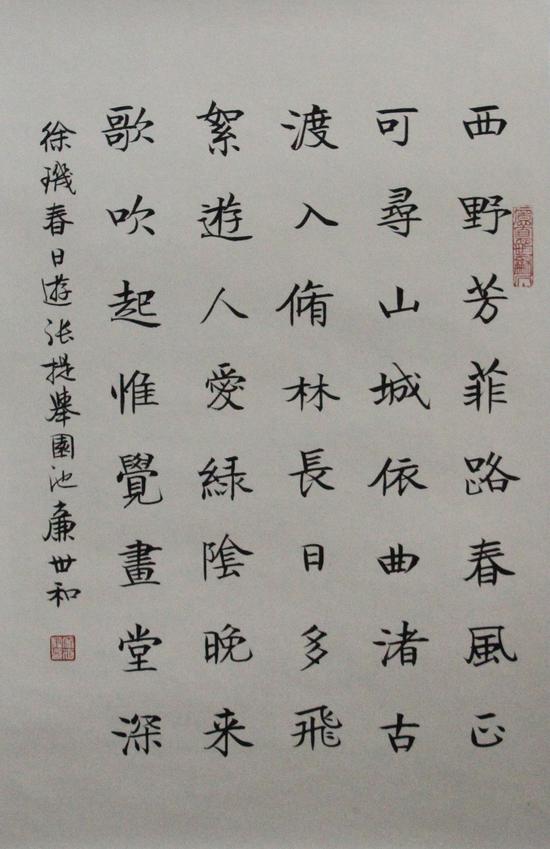 西野芳菲路春風正
可尋山城依曲渚古
渡入脩林長日多飛
絮遊人愛緑陰晚来
歌吹起惟覺畫堂深
徐璣春日遊張提舉園池廉世和